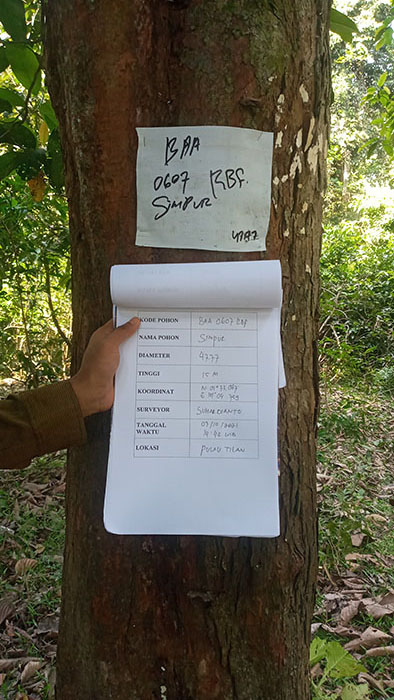 BAA
0607 RBF.
SIMPUR
47,77
KODE POHON BAA 0607
NAMA POHON SIMPUR
DIAMETER 47,77
TINGGI 15 M
KOORDINAT
SURVEYOR SUHARDIANTO
TANGGAL
WAKTU
LOKASI PULAU TILAN